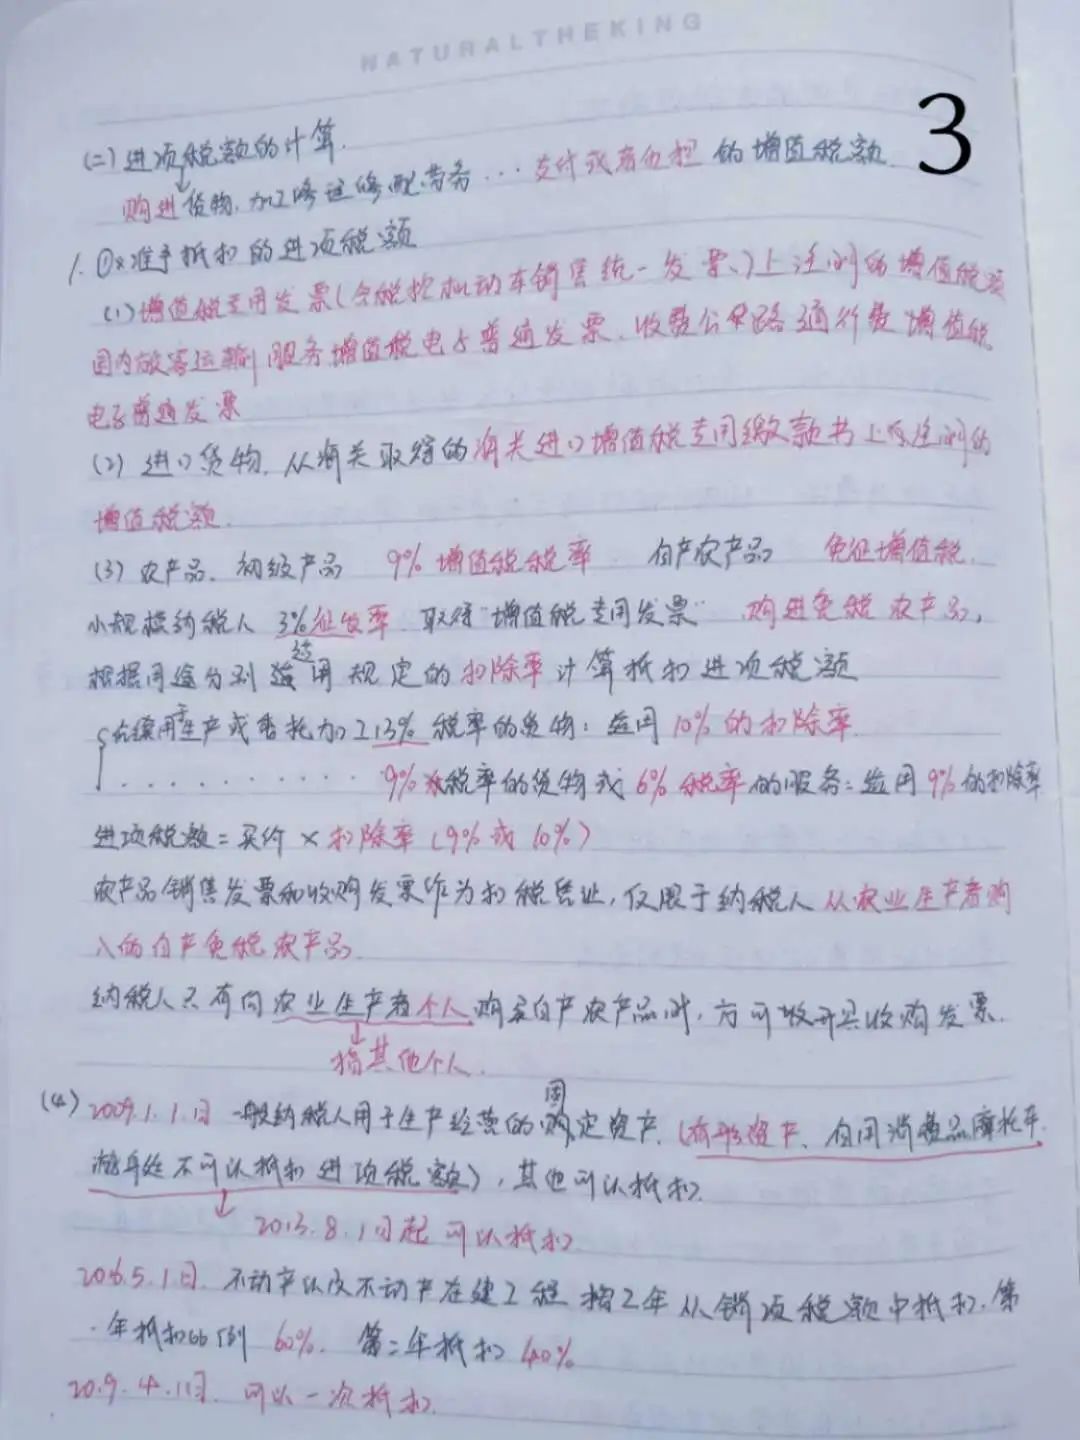 NATURALTHEKING
3
(二)进项税额的计算.
购进货物.加工修理修配劳务...支付或者负担的增值税额
1.①准予抵扣的进项税额
(1)增值税专用发票(含税控机动车销售统一发票、)上注明的增值税额
国内旅客运输服务增值税电子普通发票、收费公路通行费增值税
电子普通发票
(2)进口货物.从海关取得的海关进口增值税专用缴款书上注明的
增值税额.
(3)农产品.初级产品 9%增值税税率 自产农产品 免征增值税.
小规模纳税人 3%征收率 取得"增值税专用发票" 购进免税农产品,
根据用途分别适用规定的扣除率计算抵扣进项税额
生产或委托加工13%税率的货物:适用10%的扣除率.
............9%税率的货物或6%税率的服务:适用9%的扣除率
进项税额=买价×扣除率(9%或10%)
农产品销售发票和收购发票作为扣税凭证,仅限于纳税人从农业生产者购
入的自产免税农产品.
纳税人只有向农业生产者个人购买自产农产品时,方可开具收购发票.
指其他个人.
(4)2009.1.1日 一般纳税人用于生产经营的固定资产.(有形资产、自用消费品摩托车.
不可以抵扣进项税额),其他可以抵扣.
2013.8.1日起可以抵扣
2016.5.1日.不动产以及不动产在建工程 按2年从销项税额中抵扣.第
一年抵扣比例 60%. 第二年抵扣 40%
2019.4.1日.可以一次抵扣.